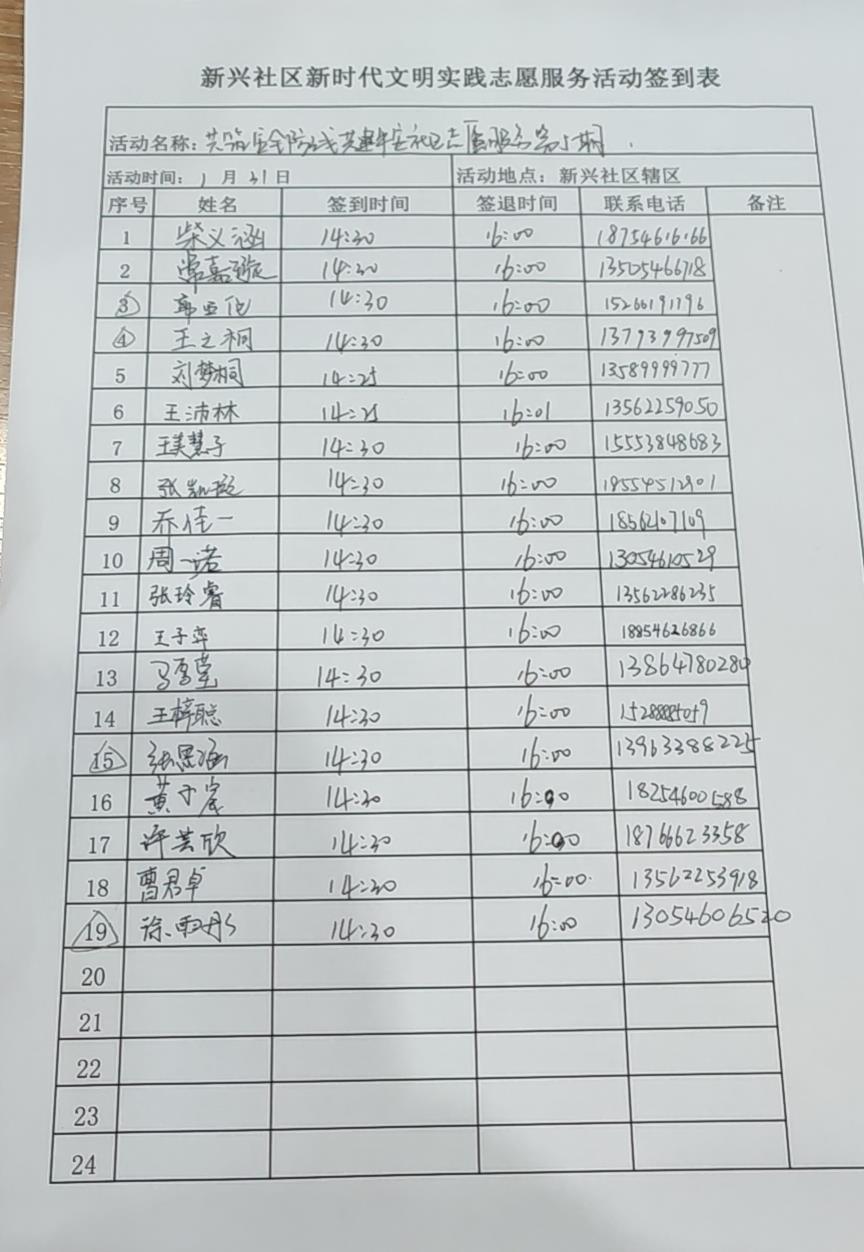 新兴社区新时代文明实践志愿服务活动签到表
活动名称：共筑安全防线 共建平安社区志愿服务第5期
活动时间：1月31日 活动地点：新兴社区辖区
序号 姓名 签到时间 签退时间 联系电话 备注
1 柴义涵 14:30 16:00 18754616166
2 常嘉璇 14:30 16:00 13505466718
3 14:30 16:00 15266191796
4 王之桐 14:30 16:00 13793997509
5 刘梦桐 14:25 16:00 13589999777
6 王沛林 14:25 16:01 13562259050
7 王美慧子 14:30 16:00 15553848683
8 张凯璇 14:30 16:00 18554512901
9 乔佳一 14:30 16:00 18562107109
10 周一诺 14:30 16:00 13054610529
11 张玲睿 14:30 16:00 13562286235
12 王子弈 14:30 16:00 18854626866
13 14:30 16:00 13864780280
14 王梓聪 14:30 16:00 15288885059
15 张思涵 14:30 16:00 13963388225
16 黄子宸 14:30 16:00 18254600588
17 许芸欣 14:30 16:00 18766623358
18 曹君卓 14:30 16:00 13562253918
19 徐雨彤 14:30 16:00 13054606520
20
21
22
23
24